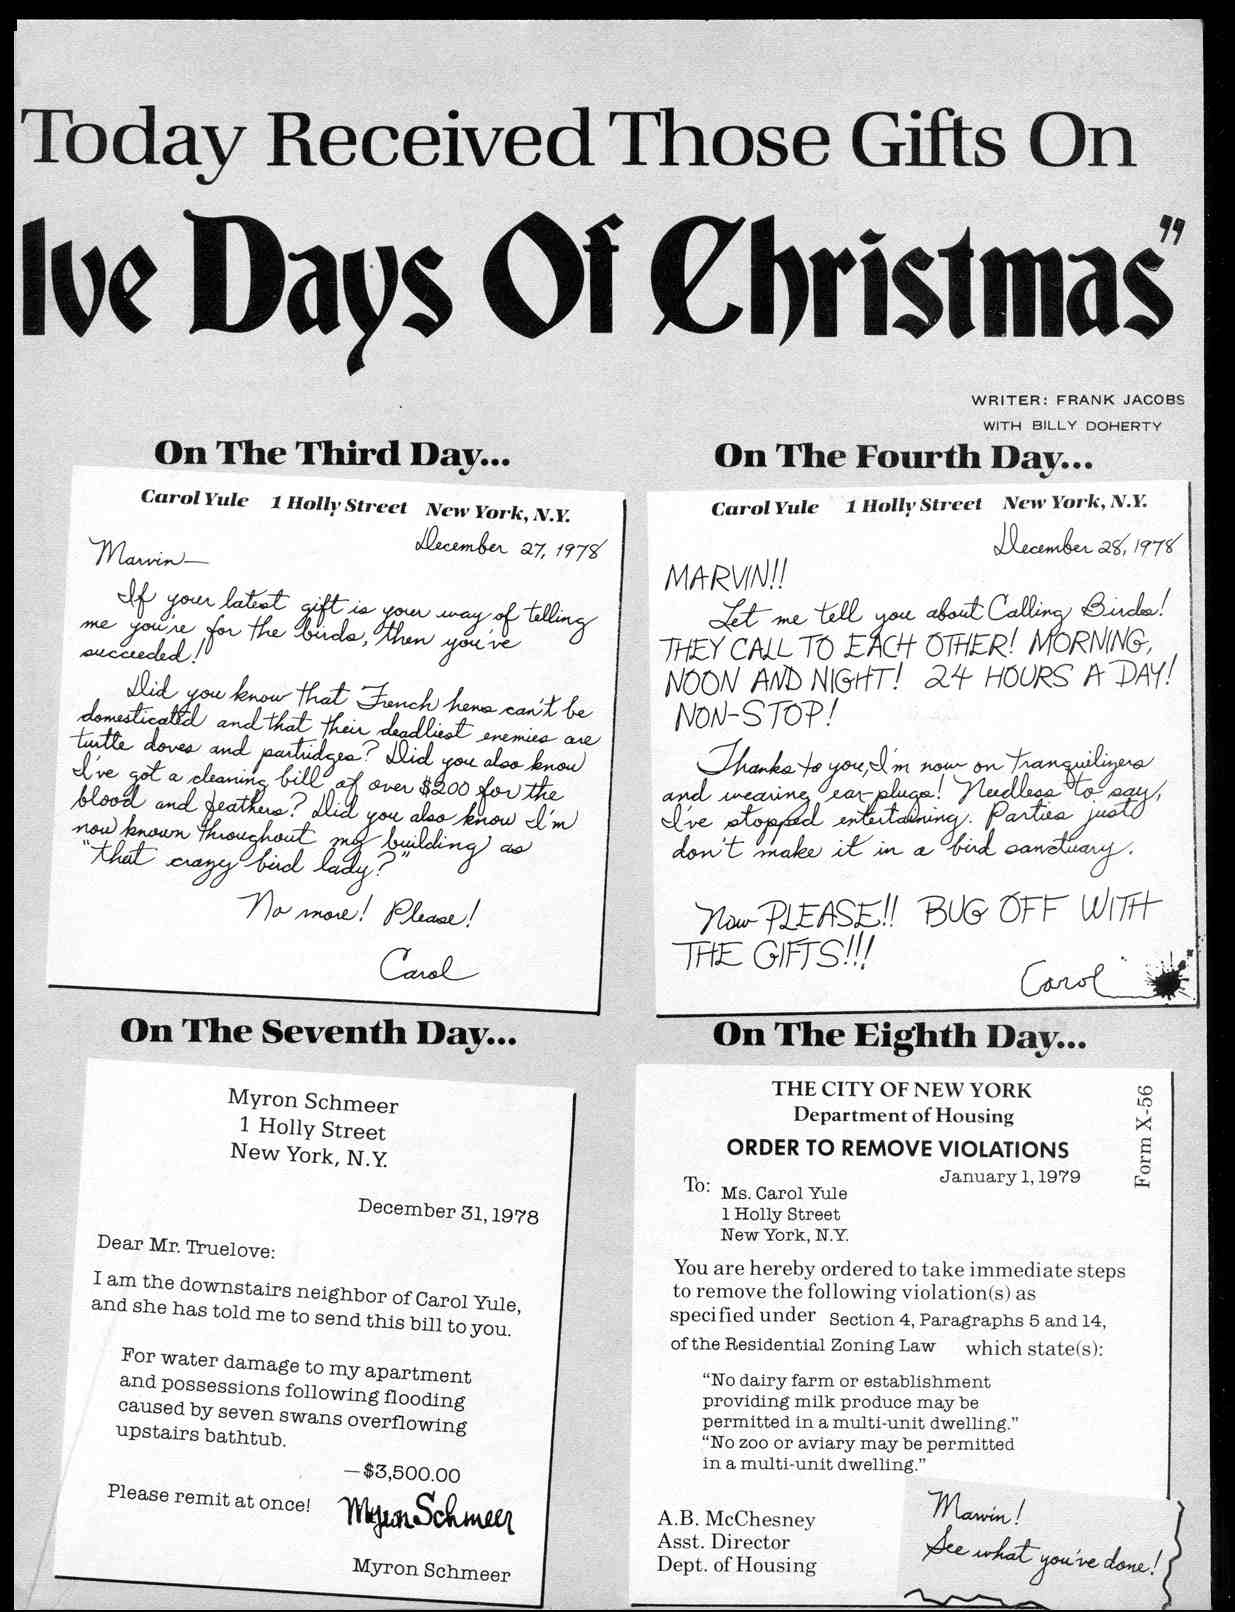 Today Received Those Gifts On
lve Days Of Christmas"
WRITER: FRANK JACOBS
WITH BILLY DOHERTY
On The Third Day...
Carol Yule 1 Holly Street New York, N.Y.
December 27, 1978
Marvin—
If your latest gift is your way of telling
me you're for the birds, then you've
succeeded!
Did you know that French hens can't be
domesticated and that their deadliest enemies are
turtle doves and partridges? Did you also know
I've got a cleaning bill of over $200 for the
blood and feathers? Did you also know I'm
now known throughout my building as
"that crazy bird lady?"
No more! Please!
Carol
On The Fourth Day...
Carol Yule 1 Holly Street New York, N.Y.
December 28, 1978
MARVIN!!
Let me tell you about Calling Birds!
THEY CALL TO EACH OTHER! MORNING,
NOON AND NIGHT! 24 HOURS A DAY!
NON-STOP!
Thanks to you, I'm now on tranquilizers
and wearing ear-plugs! Needless to say,
I've stopped entertaining. Parties just
don't make it in a bird sanctuary.
Now PLEASE!! BUG OFF WITH
THE GIFTS!!!
Carol
On The Seventh Day...
Myron Schmeer
1 Holly Street
New York, N.Y.
December 31, 1978
Dear Mr. Truelove:
I am the downstairs neighbor of Carol Yule,
and she has told me to send this bill to you.
For water damage to my apartment
and possessions following flooding
caused by seven swans overflowing
upstairs bathtub.
—$3,500.00
Please remit at once!
Myron Schmeer
Myron Schmeer
On The Eighth Day...
THE CITY OF NEW YORK
Department of Housing
ORDER TO REMOVE VIOLATIONS
Form X-56
January 1, 1979
To: Ms. Carol Yule
1 Holly Street
New York, N.Y.
You are hereby ordered to take immediate steps
to remove the following violation(s) as
specified under Section 4, Paragraphs 5 and 14,
of the Residential Zoning Law which state(s):
"No dairy farm or establishment
providing milk produce may be
permitted in a multi-unit dwelling."
"No zoo or aviary may be permitted
in a multi-unit dwelling."
A.B. McChesney
Asst. Director
Dept. of Housing
Marvin!
See what you've done!